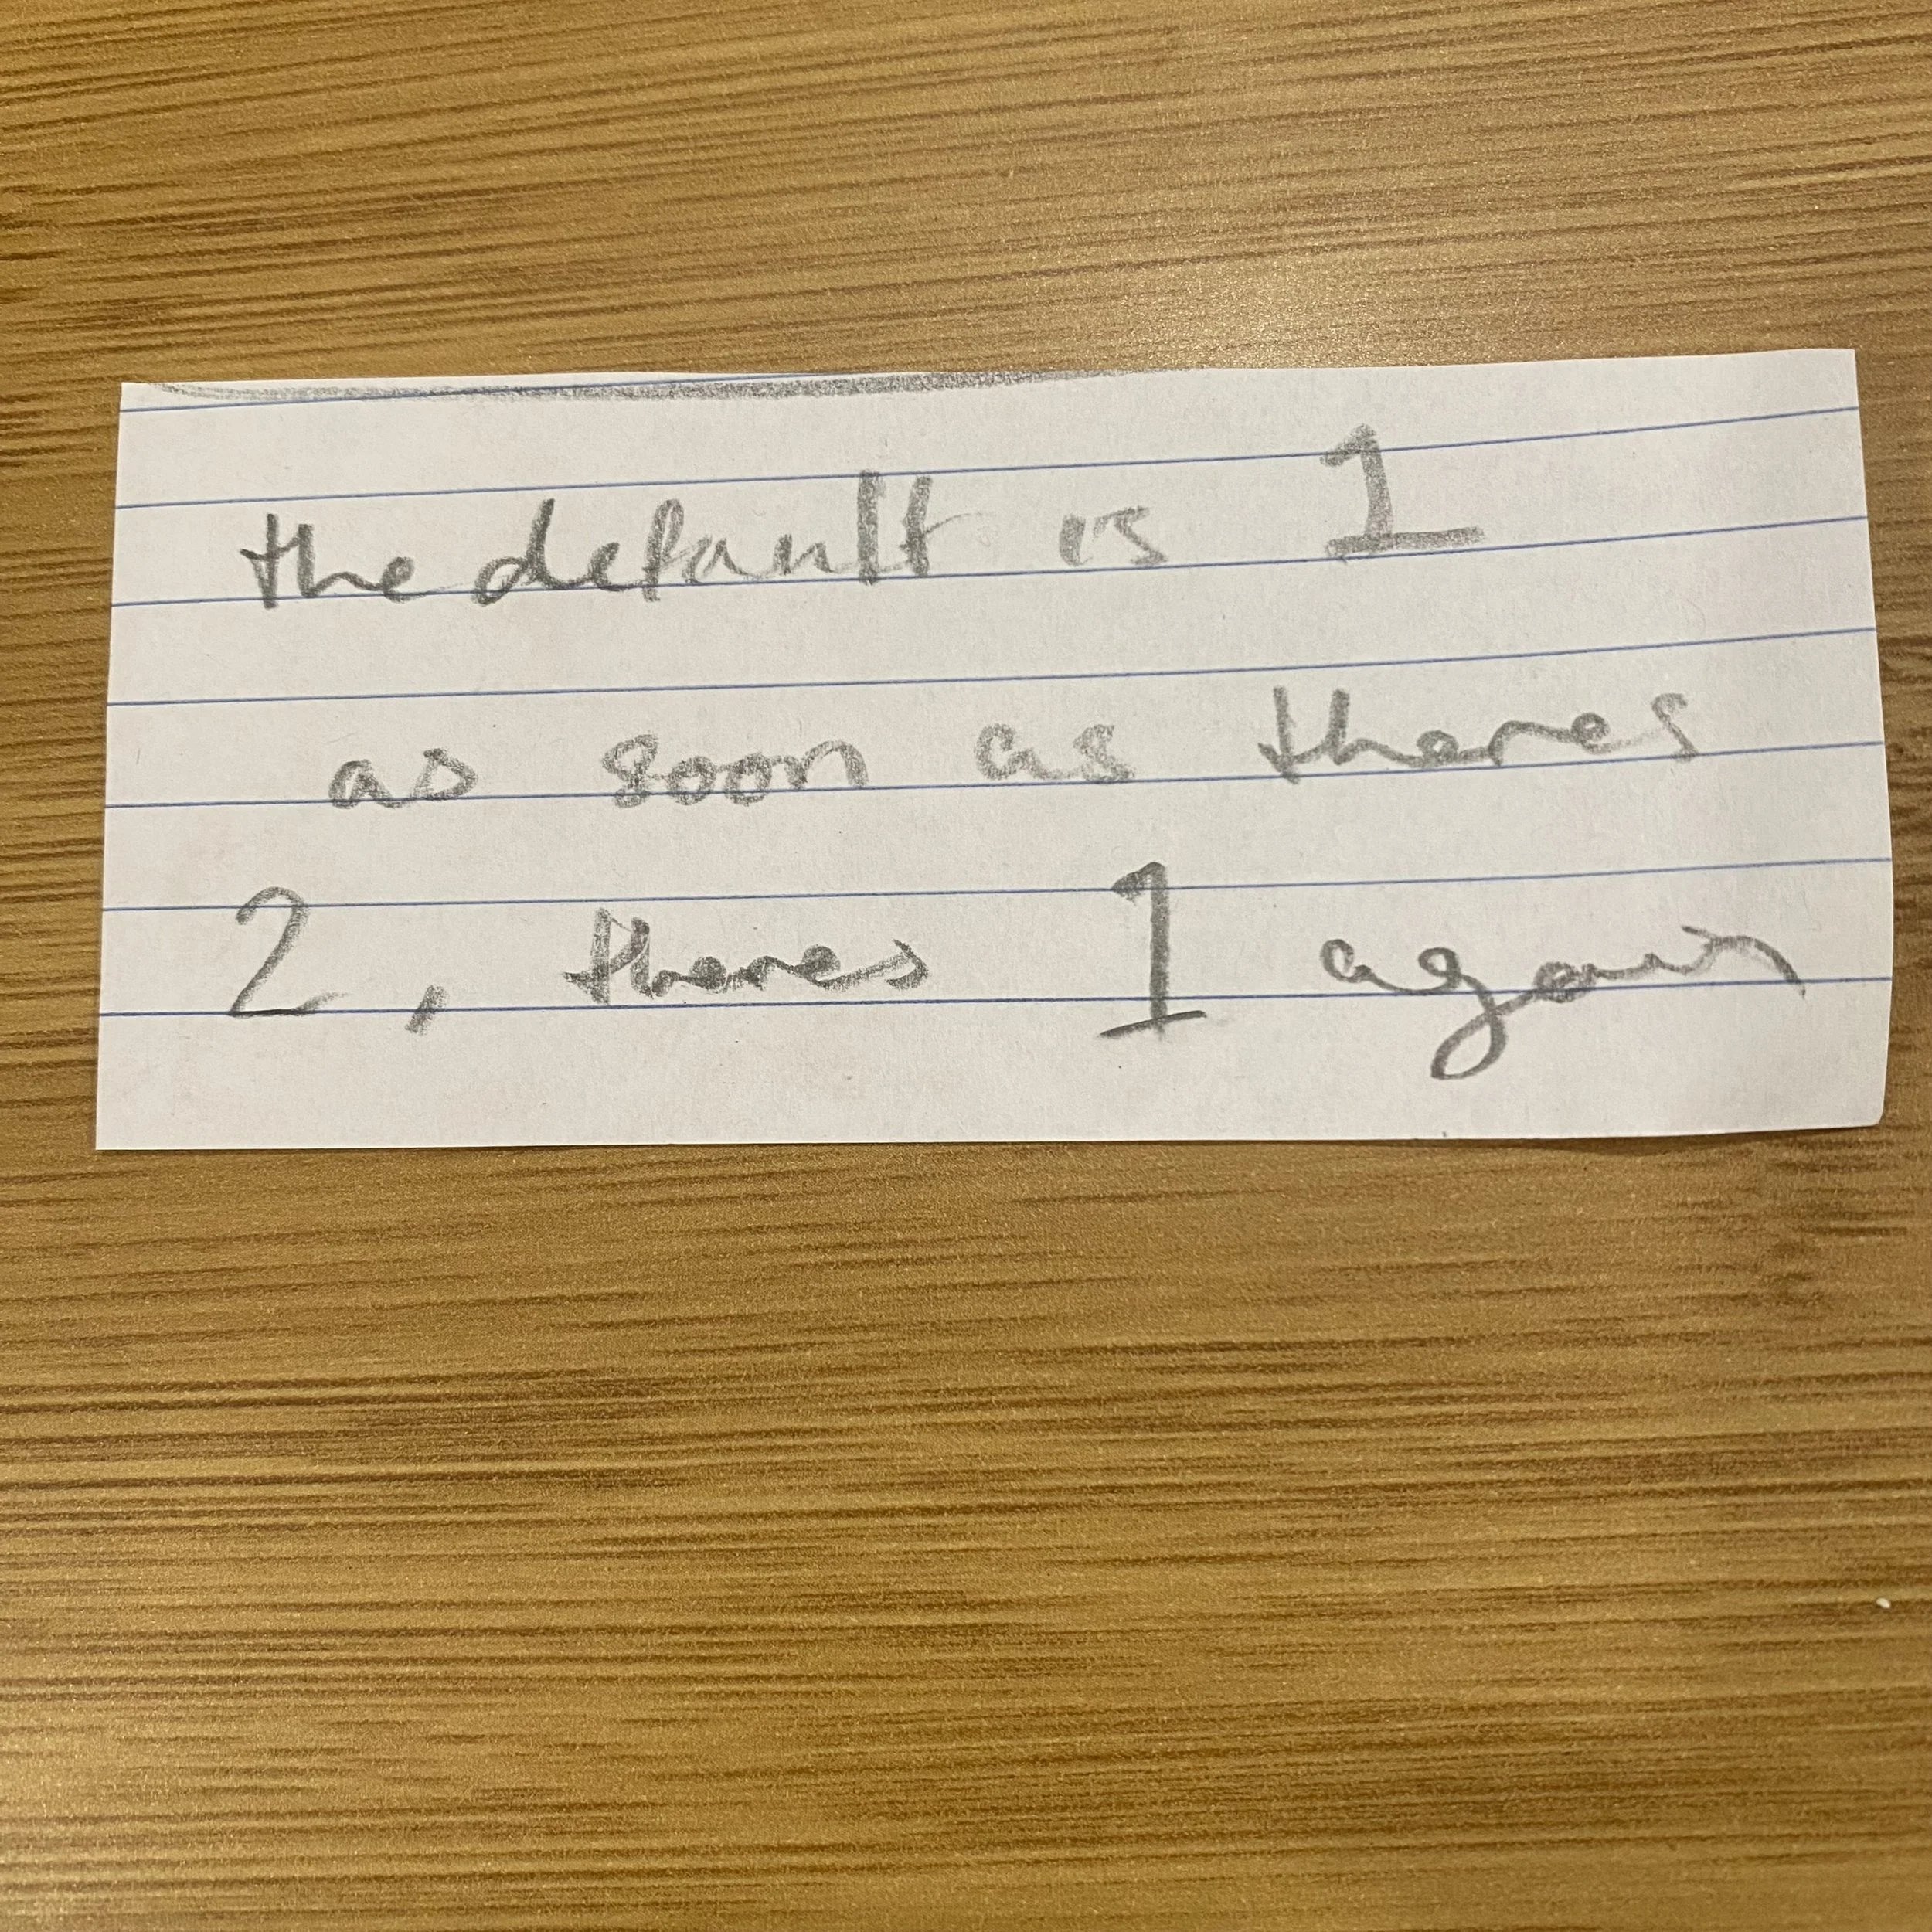 the default is 1
as soon as theres
2, theres 1 again